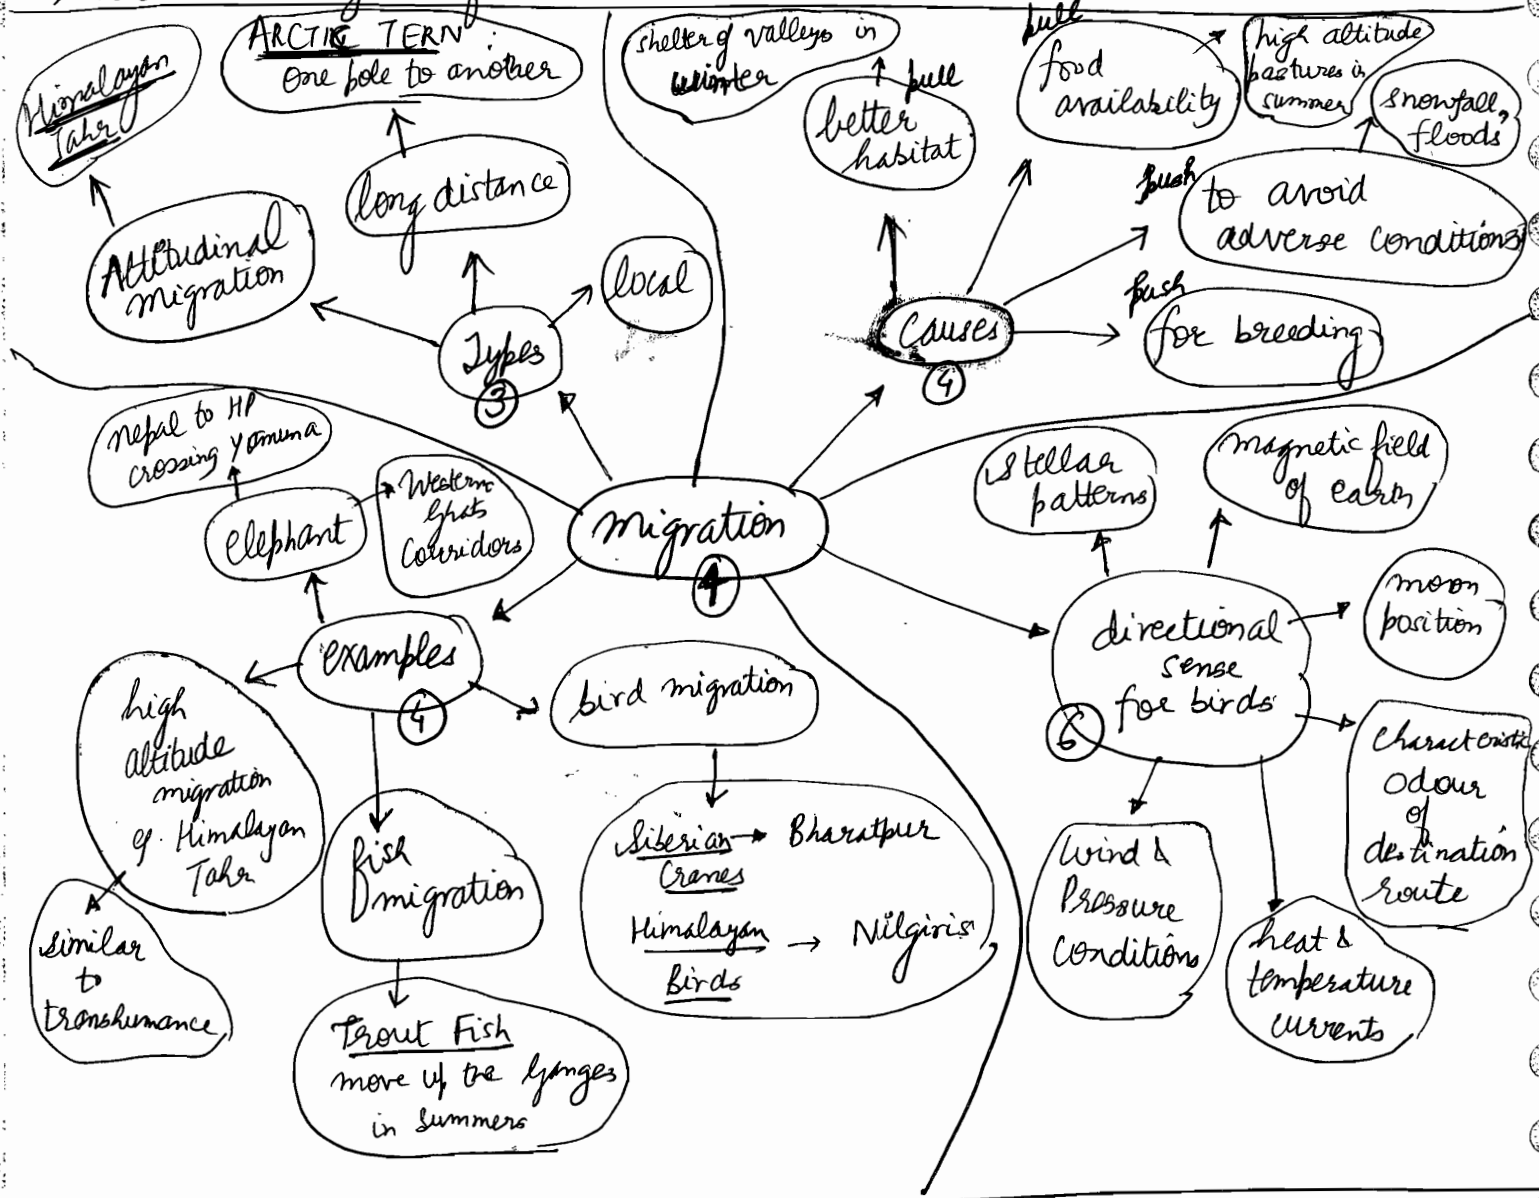 Himalayan
Tahr
ARCTIC TERN :
one pole to another
long distance
Altitudinal
migration
local
Types
3
shelter of valleys in
winter
pull
better
habitat
pull
food
availability
high altitude
pastures in
summer
snowfall,
floods
push
to avoid
adverse conditions
push
for breeding
causes
4
nepal to HP
crossing yamuna
elephant
Western
Ghats
Corridors
migration
4
examples
4
high
altitude
migration
eg. Himalayan
Tahr
similar
to
transhumance
fish
migration
Trout Fish
move up the Ganges
in summers
bird migration
Siberian → Bharatpur
Cranes
Himalayan → Nilgiris
Birds
stellar
patterns
magnetic field
of earth
moon
position
directional
sense
for birds
6
characteristic
odour
of
destination
route
wind &
Pressure
conditions
heat &
temperature
currents